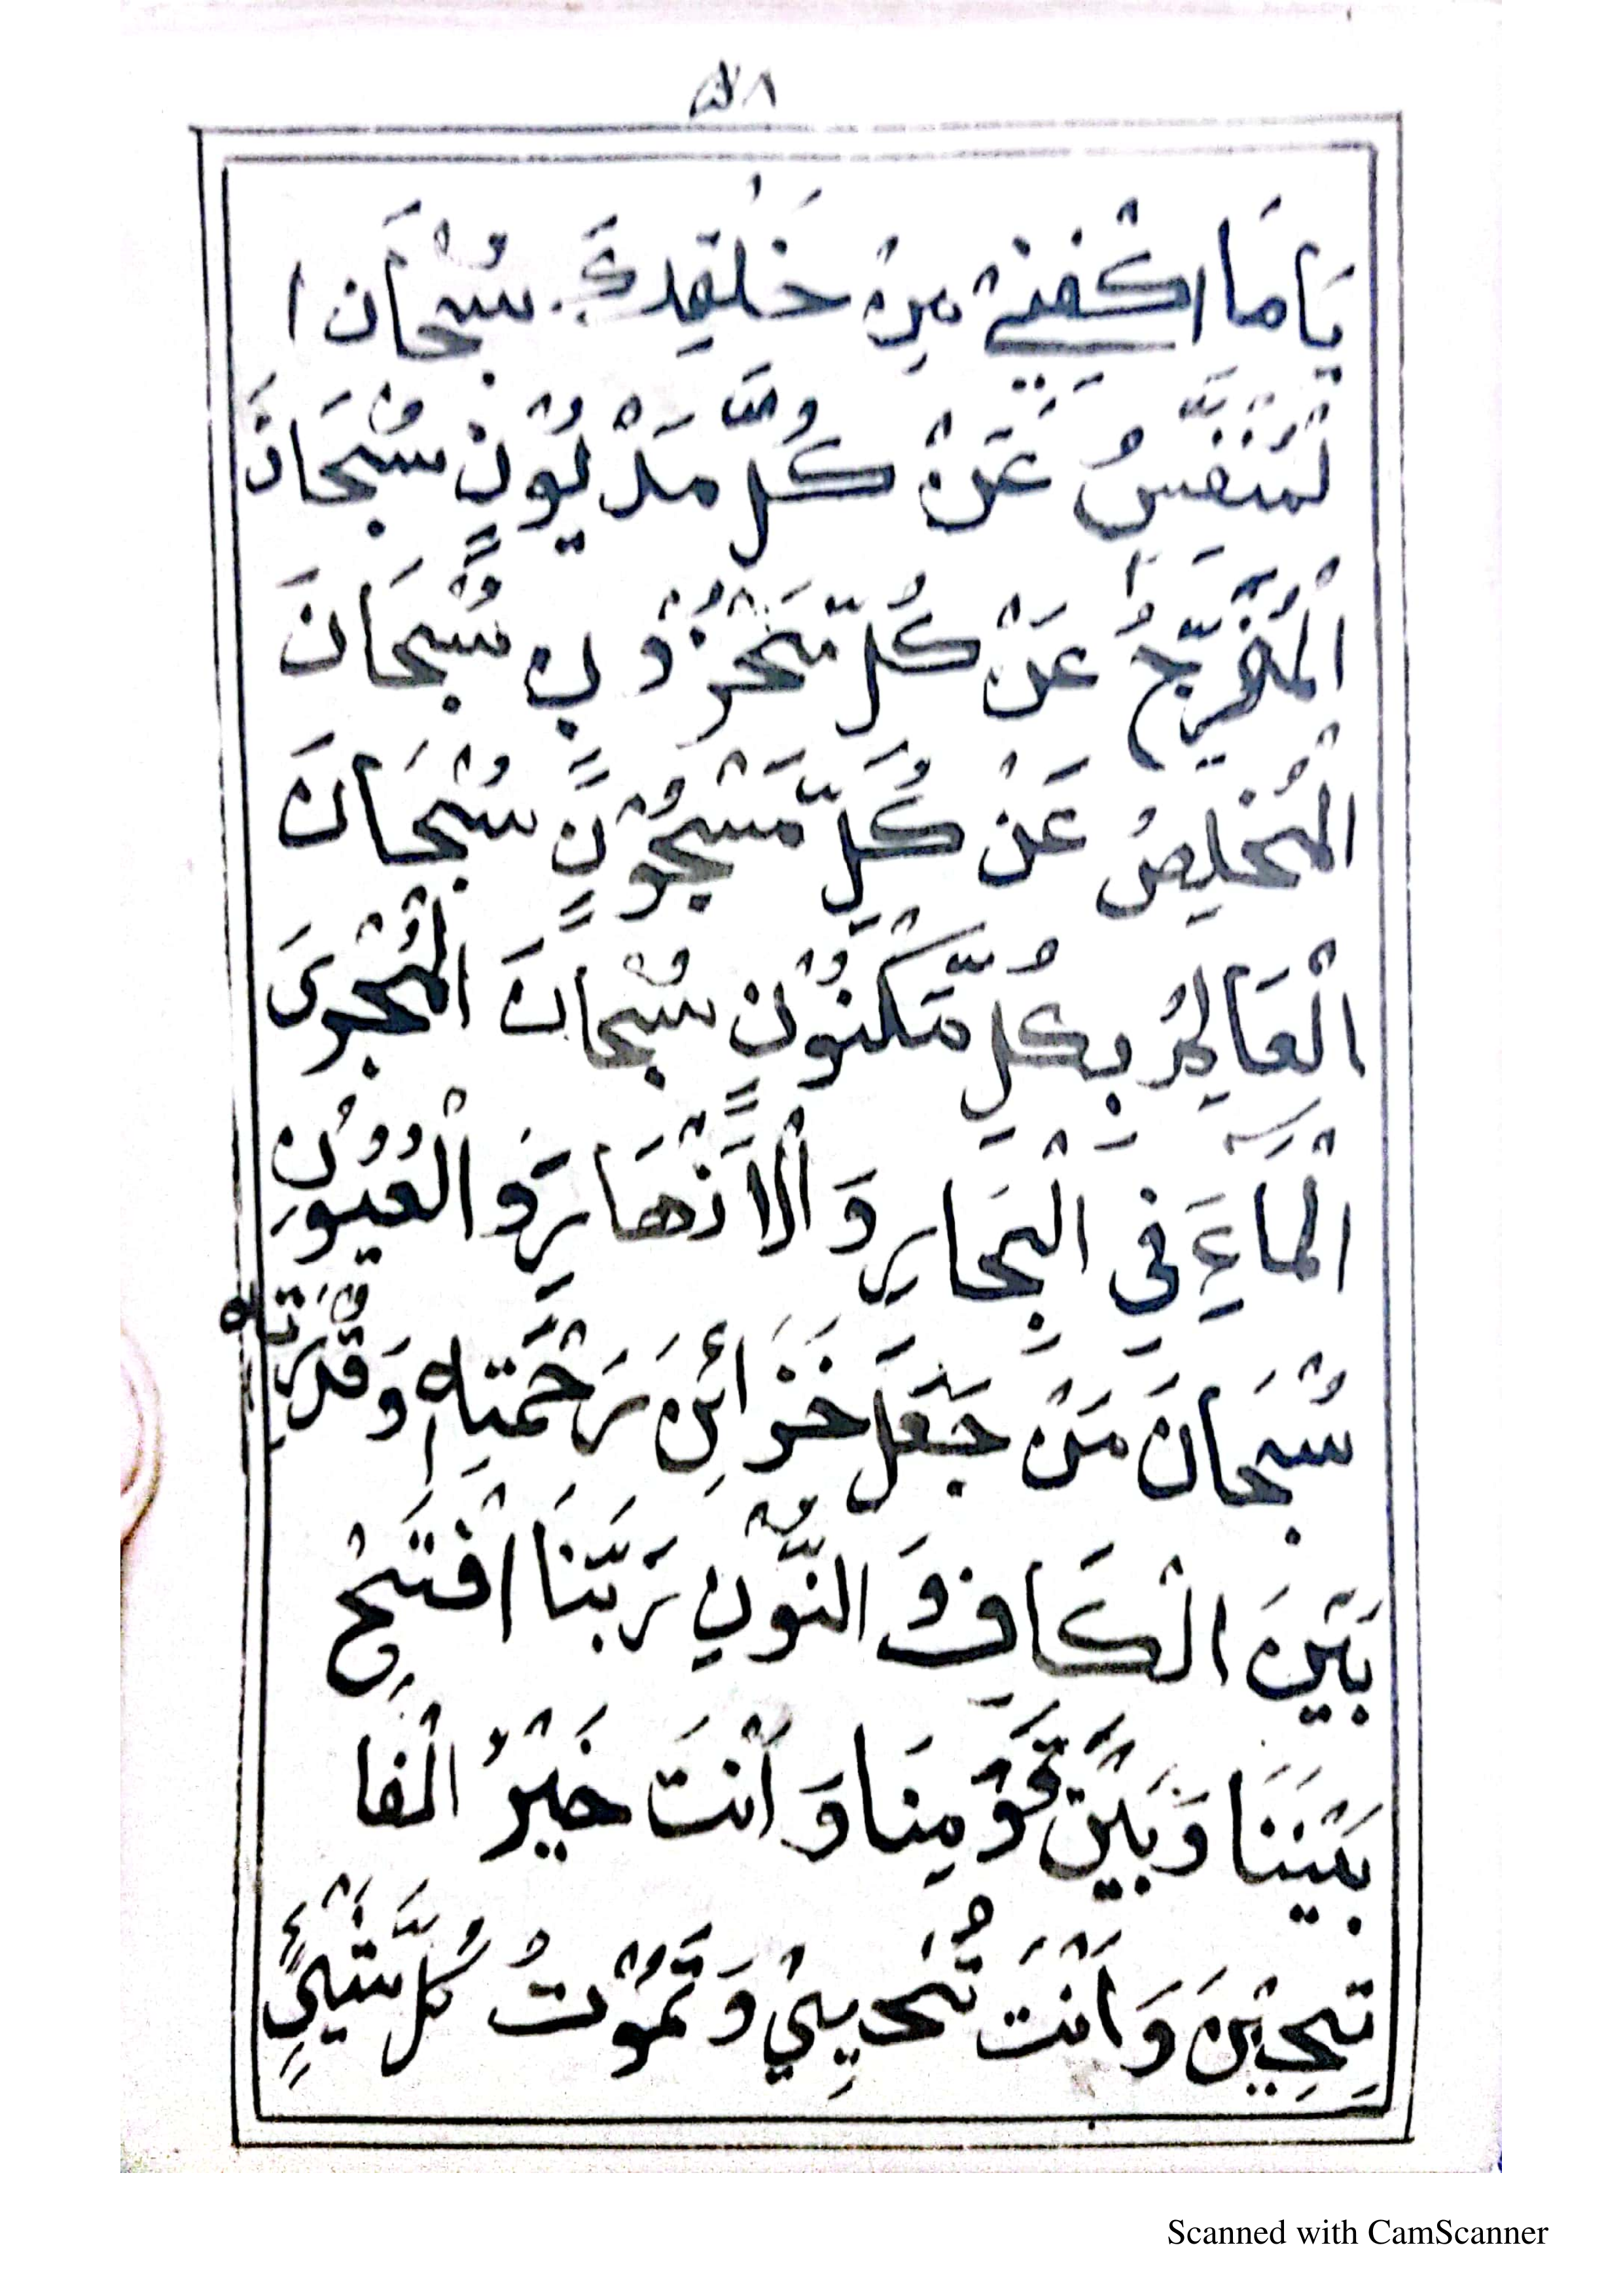 يَا مَا اكْفِنِيْ مِنْ خَلْقِكَ سُبْحَانَ ا
لْمُنَفِّسُ عَنْ كُلِّ مَدْيُوْنٍ سُبْحَانَ
الْمُفَرِّجُ عَنْ كُلِّ مَّحْزُوْنٍ سُبْحَانَ
الْمُخْلِصُ عَنْ كُلِّ مَّسْجُوْنٍ سُبْحَانَ
الْعَالِمُ بِكُلِّ مَّكْنُوْنٍ سُبْحَانَ الْمُجْرِىَ
الْمَاءِ فِي الْبِحَارِ وَ الْاَنْهَارِ وَ الْعُيُوْنِ
سُبْحَانَ مَنْ جَعَلَ خَزَائِنَ رَحْمَتِهٖ وَ قُدْرَتِهٖ
بَيْنَ الْكَافِ وَ النُّوْنِ رَبَّنَا افْتَحْ
بَيْنَنَا وَ بَيْنَ قَوْمِنَا وَ اَنْتَ خَيْرُ الْفَا
تِحِيْنَ وَ اَنْتَ تُحْيِيْ وَ تَمُوْتُ كُلَّ شَيْئٍ
Scanned with CamScanner